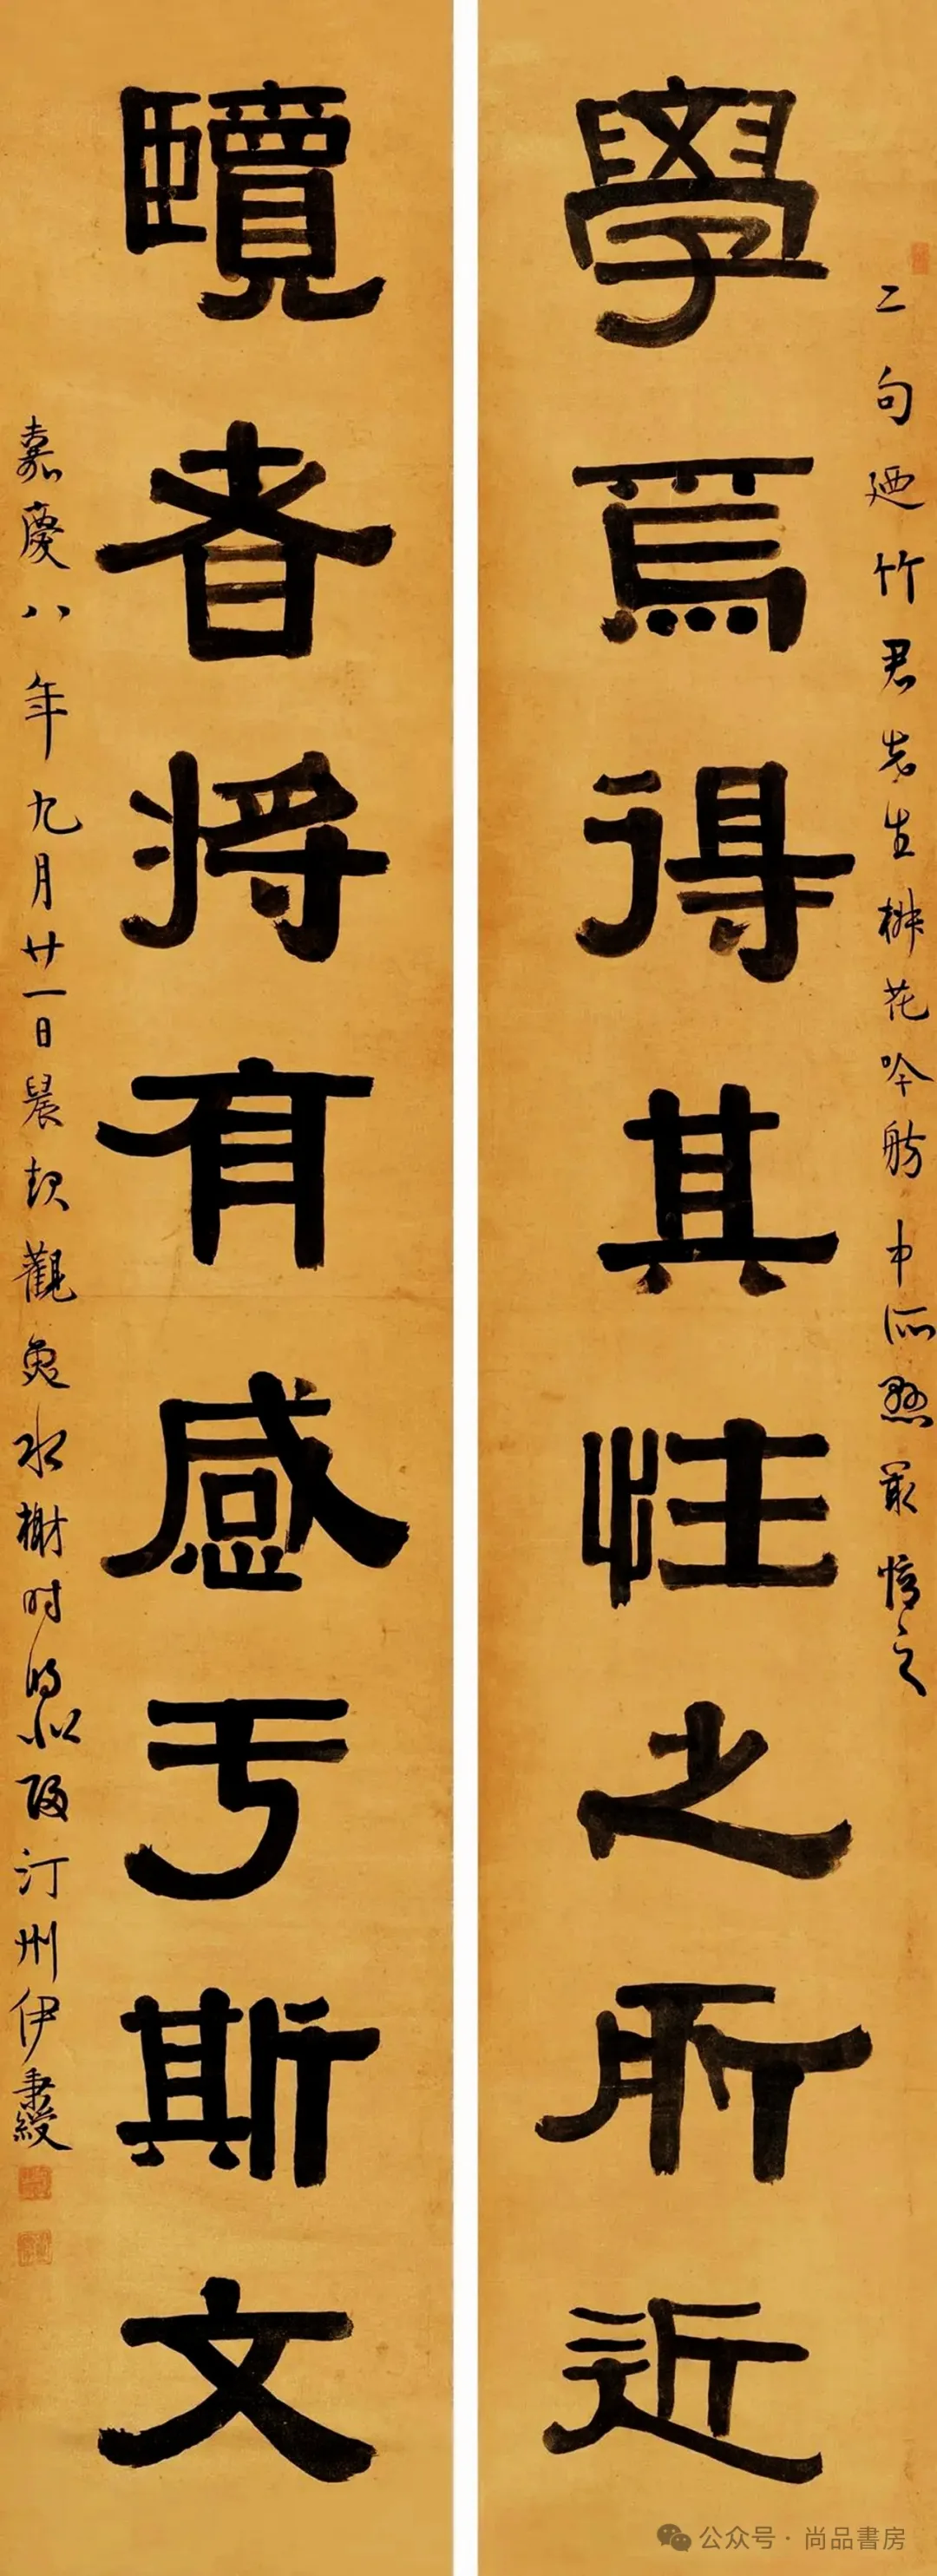 二句廼竹君先生椒花吟舫中
學焉得其性之所近
覽者將有感于斯文
嘉慶八年九月廿一日晨起觀魚水榭時汀州伊秉綬
公众号·尚品書房